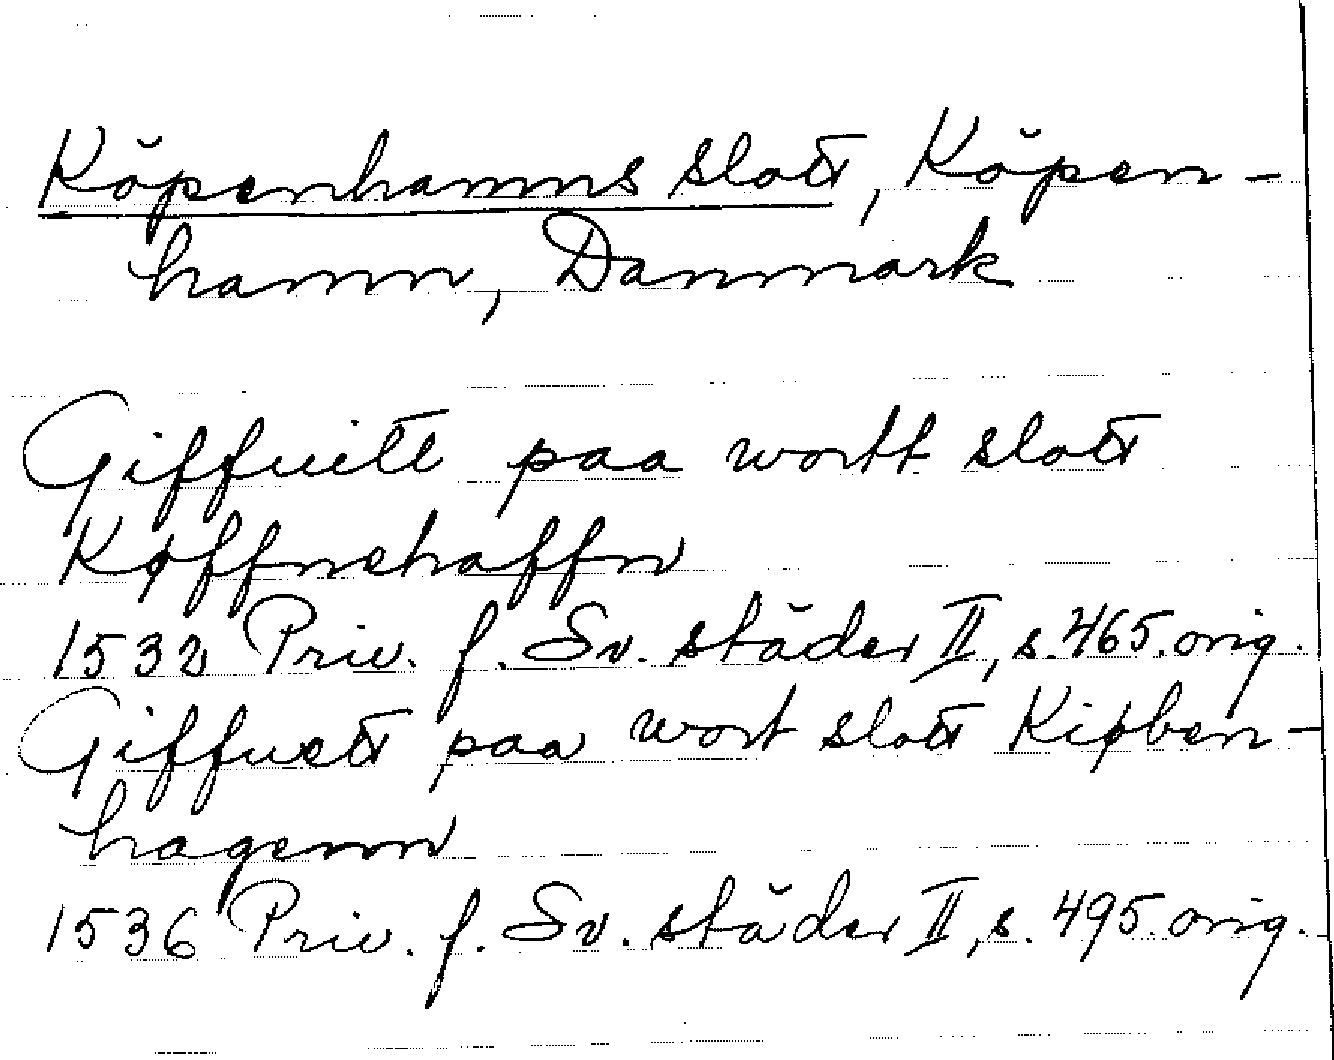 Köpenhamns slott, Köpen-
hamn, Danmark
Giffuitt paa wortt slott
Køffnehaffn
1532 Priv. f. Sv. städer II, s. 465. orig.
Giffuett paa wort slott Kiøben-
hagenn
1536 Priv. f. Sv. städer II, s. 495. orig.